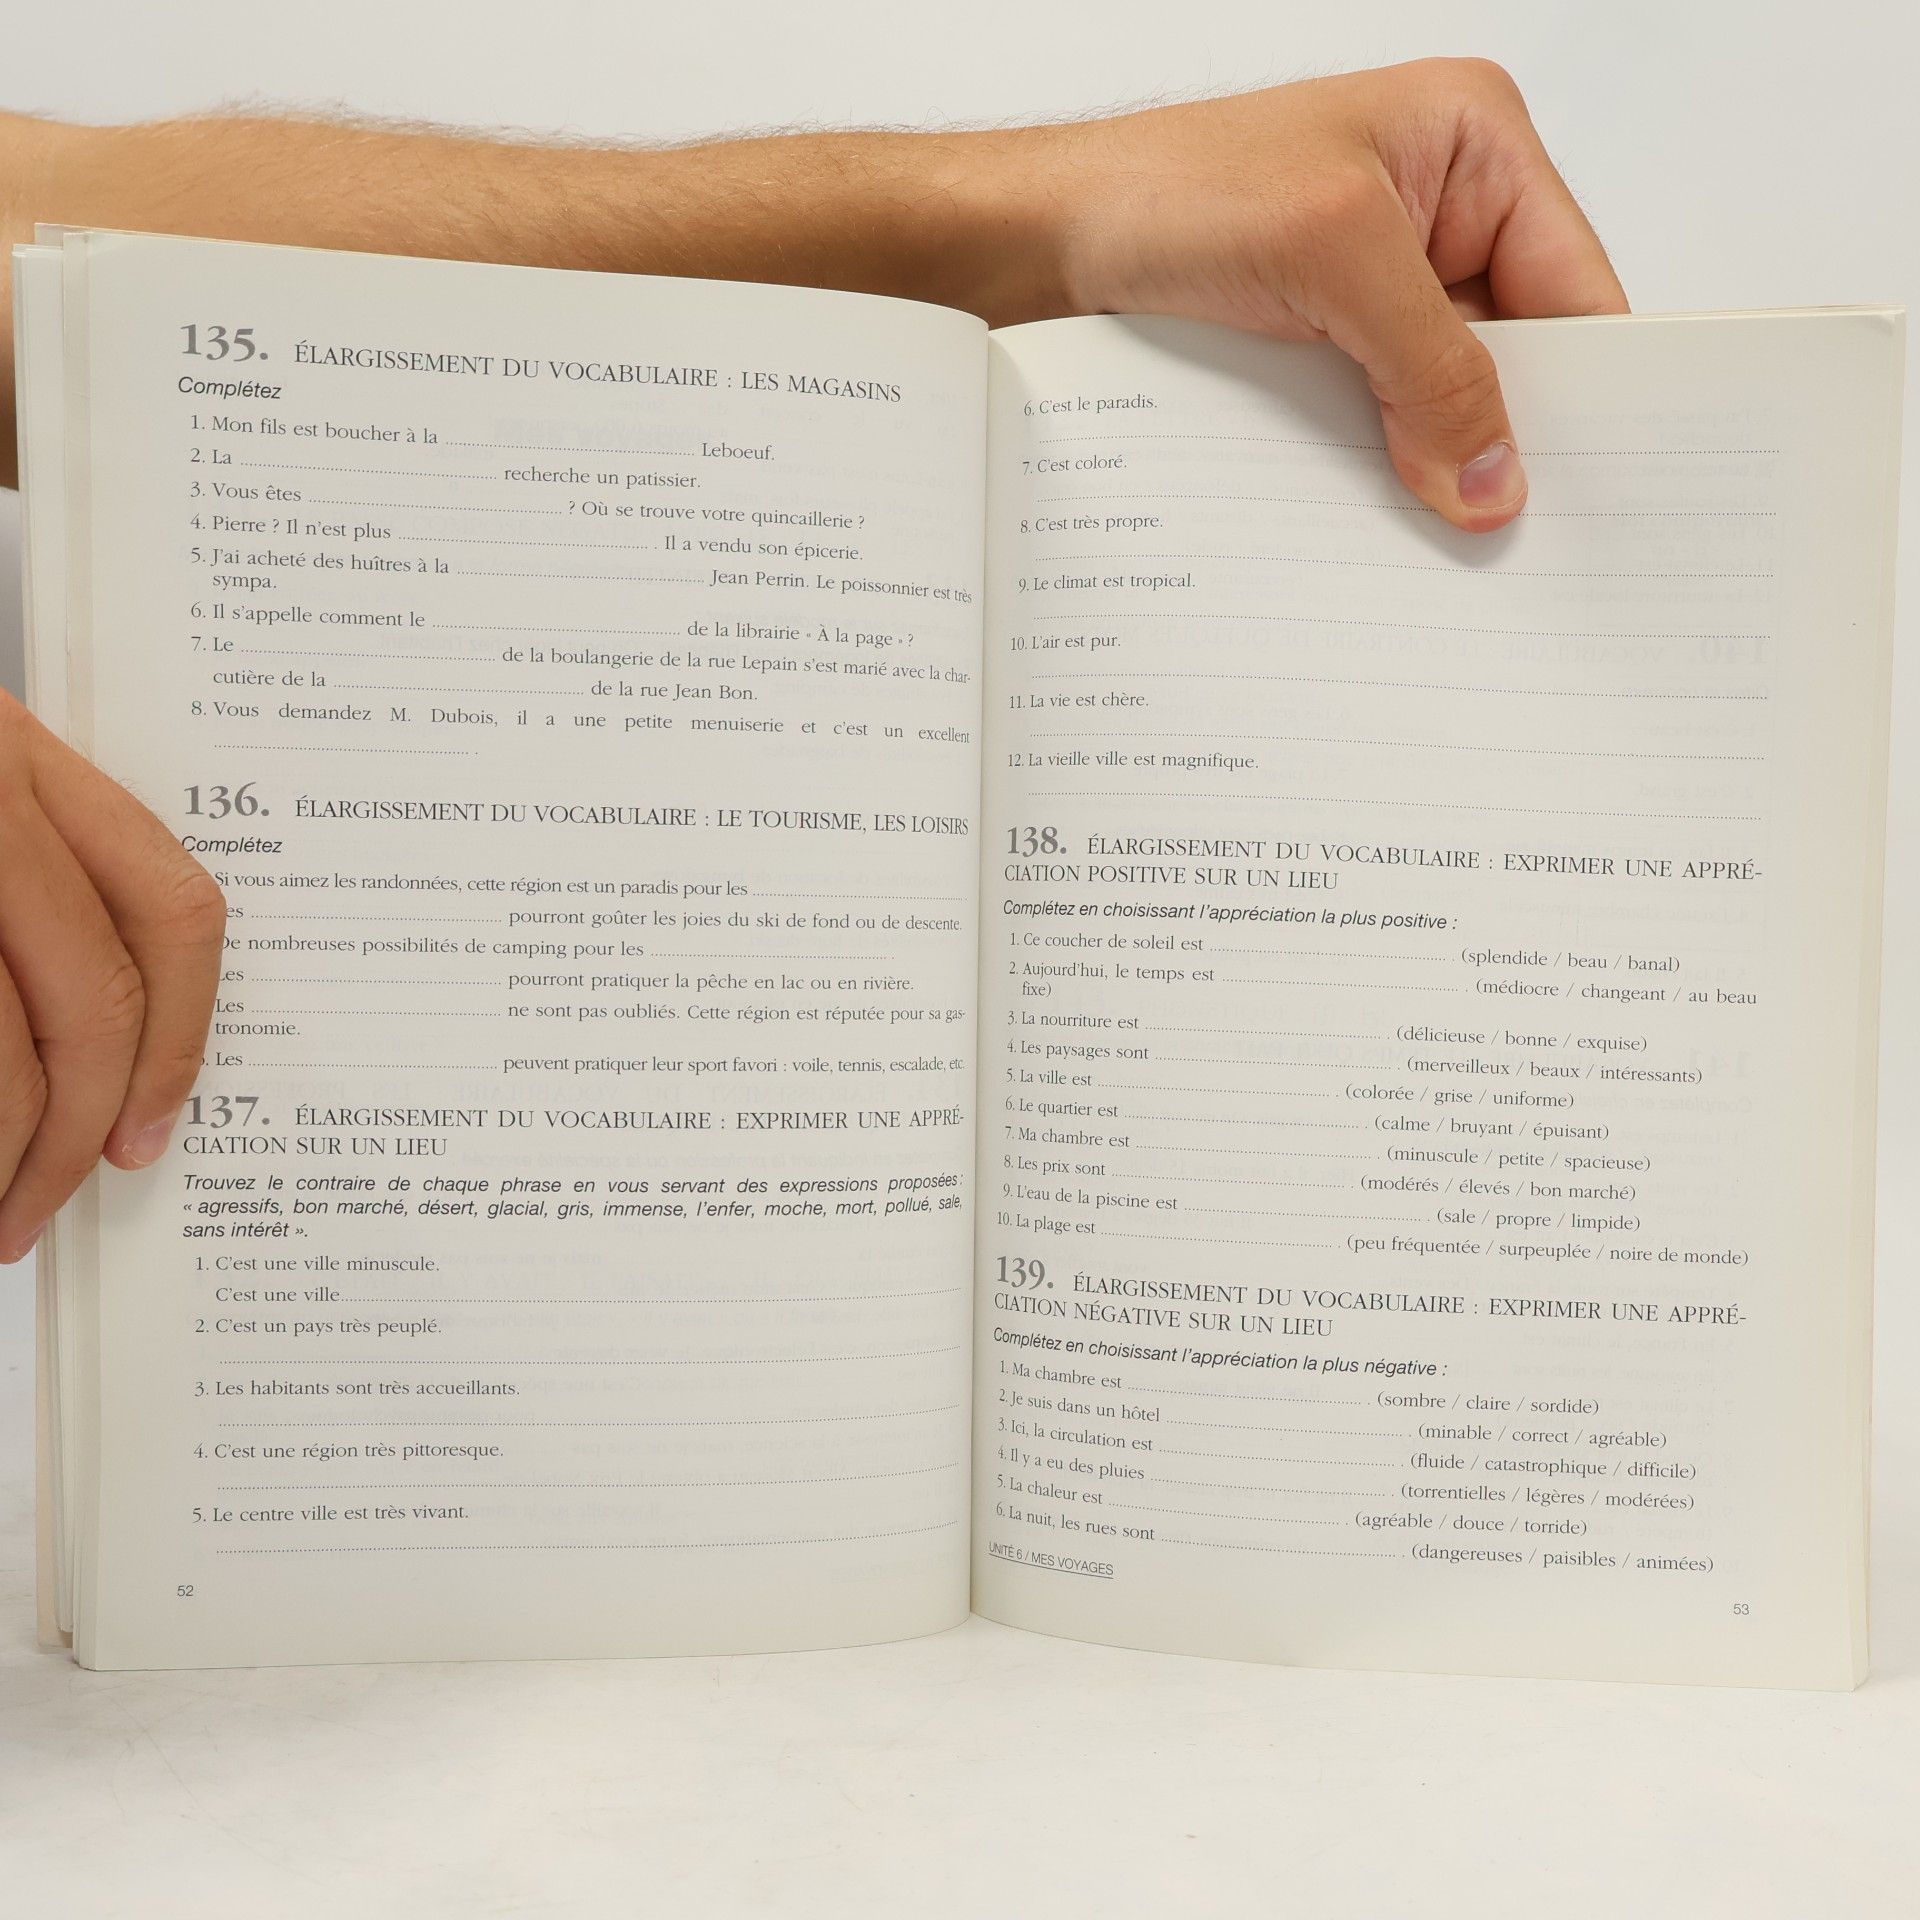 135. ÉLARGISSEMENT DU VOCABULAIRE : LES MAGASINS
Complétez
1. Mon fils est boucher à la ........................ Leboeuf.
2. La ........................ recherche un patissier.
3. Vous êtes ........................ ? Où se trouve votre quincaillerie ?
4. Pierre ? Il n'est plus ........................ . Il a vendu son épicerie.
5. J'ai acheté des huîtres à la ........................ Jean Perrin. Le poissonnier est très
sympa.
6. Il s'appelle comment le ........................ de la librairie « À la page » ?
7. Le ........................ de la boulangerie de la rue Lepain s'est marié avec la char-
cutière de la ........................ de la rue Jean Bon.
8. Vous demandez M. Dubois, il a une petite menuiserie et c'est un excellent
........................ .
136. ÉLARGISSEMENT DU VOCABULAIRE : LE TOURISME, LES LOISIRS
Complétez
Si vous aimez les randonnées, cette région est un paradis pour les ........................
........................ pourront goûter les joies du ski de fond ou de descente.
De nombreuses possibilités de camping pour les ........................ .
Les ........................ pourront pratiquer la pêche en lac ou en rivière.
Les ........................ ne sont pas oubliés. Cette région est réputée pour sa gas-
tronomie.
Les ........................ peuvent pratiquer leur sport favori : voile, tennis, escalade, etc.
137. ÉLARGISSEMENT DU VOCABULAIRE : EXPRIMER UNE APPRÉ-
CIATION SUR UN LIEU
Trouvez le contraire de chaque phrase en vous servant des expressions proposées :
« agressifs, bon marché, désert, glacial, gris, immense, l'enfer, moche, mort, pollué, sale,
sans intérêt ».
1. C'est une ville minuscule.
C'est une ville........................
2. C'est un pays très peuplé.
........................
3. Les habitants sont très accueillants.
........................
4. C'est une région très pittoresque.
........................
5. Le centre ville est très vivant.
........................
52
6. C'est le paradis.
........................
7. C'est coloré.
........................
8. C'est très propre.
........................
9. Le climat est tropical.
........................
10. L'air est pur.
........................
11. La vie est chère.
........................
12. La vieille ville est magnifique.
........................
138. ÉLARGISSEMENT DU VOCABULAIRE : EXPRIMER UNE APPRÉ-
CIATION POSITIVE SUR UN LIEU
Complétez en choisissant l'appréciation la plus positive :
1. Ce coucher de soleil est ........................ . (splendide / beau / banal)
2. Aujourd'hui, le temps est ........................ . (médiocre / changeant / au beau
fixe)
3. La nourriture est ........................ . (délicieuse / bonne / exquise)
4. Les paysages sont ........................ . (merveilleux / beaux / intéressants)
5. La ville est ........................ . (colorée / grise / uniforme)
6. Le quartier est ........................ . (calme / bruyant / épuisant)
7. Ma chambre est ........................ . (minuscule / petite / spacieuse)
8. Les prix sont ........................ . (modérés / élevés / bon marché)
9. L'eau de la piscine est ........................ . (sale / propre / limpide)
10. La plage est ........................ . (peu fréquentée / surpeuplée / noire de monde)
139. ÉLARGISSEMENT DU VOCABULAIRE : EXPRIMER UNE APPRÉ-
CIATION NÉGATIVE SUR UN LIEU
Complétez en choisissant l'appréciation la plus négative :
1. Ma chambre est ........................ . (sombre / claire / sordide)
2. Je suis dans un hôtel ........................ . (minable / correct / agréable)
3. Ici, la circulation est ........................ . (fluide / catastrophique / difficile)
4. Il y a eu des pluies ........................ . (torrentielles / légères / modérées)
5. La chaleur est ........................ . (agréable / douce / torride)
6. La nuit, les rues sont ........................ . (dangereuses / paisibles / animées)
UNITÉ 6 / MES VOYAGES
53